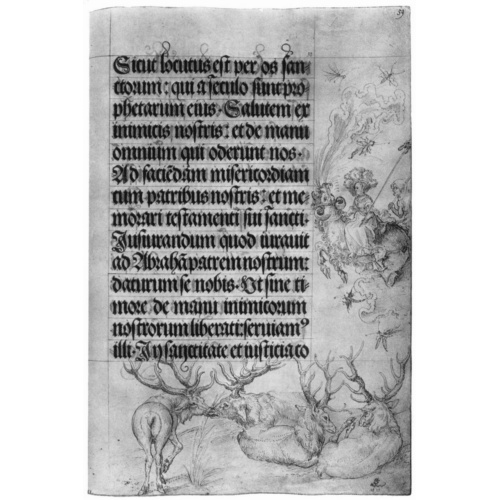 54
Sicut locutus est per os san
ctorum: qui a seculo sunt pro
phetarum eius. Salutem ex
inimicis nostris: et de manu
omnium qui oderunt nos.
Ad faciẽdam misericordiam
cum patribus nostris: et me
morari testamenti sui sancti.
Jusiurandum quod iurauit
ad Abrahã patrem nostrum:
daturum se nobis. Vt sine ti
more de manu inimicorum
nostrorum liberati: seruiamꝰ
illi. In sanctitate et iusticia co